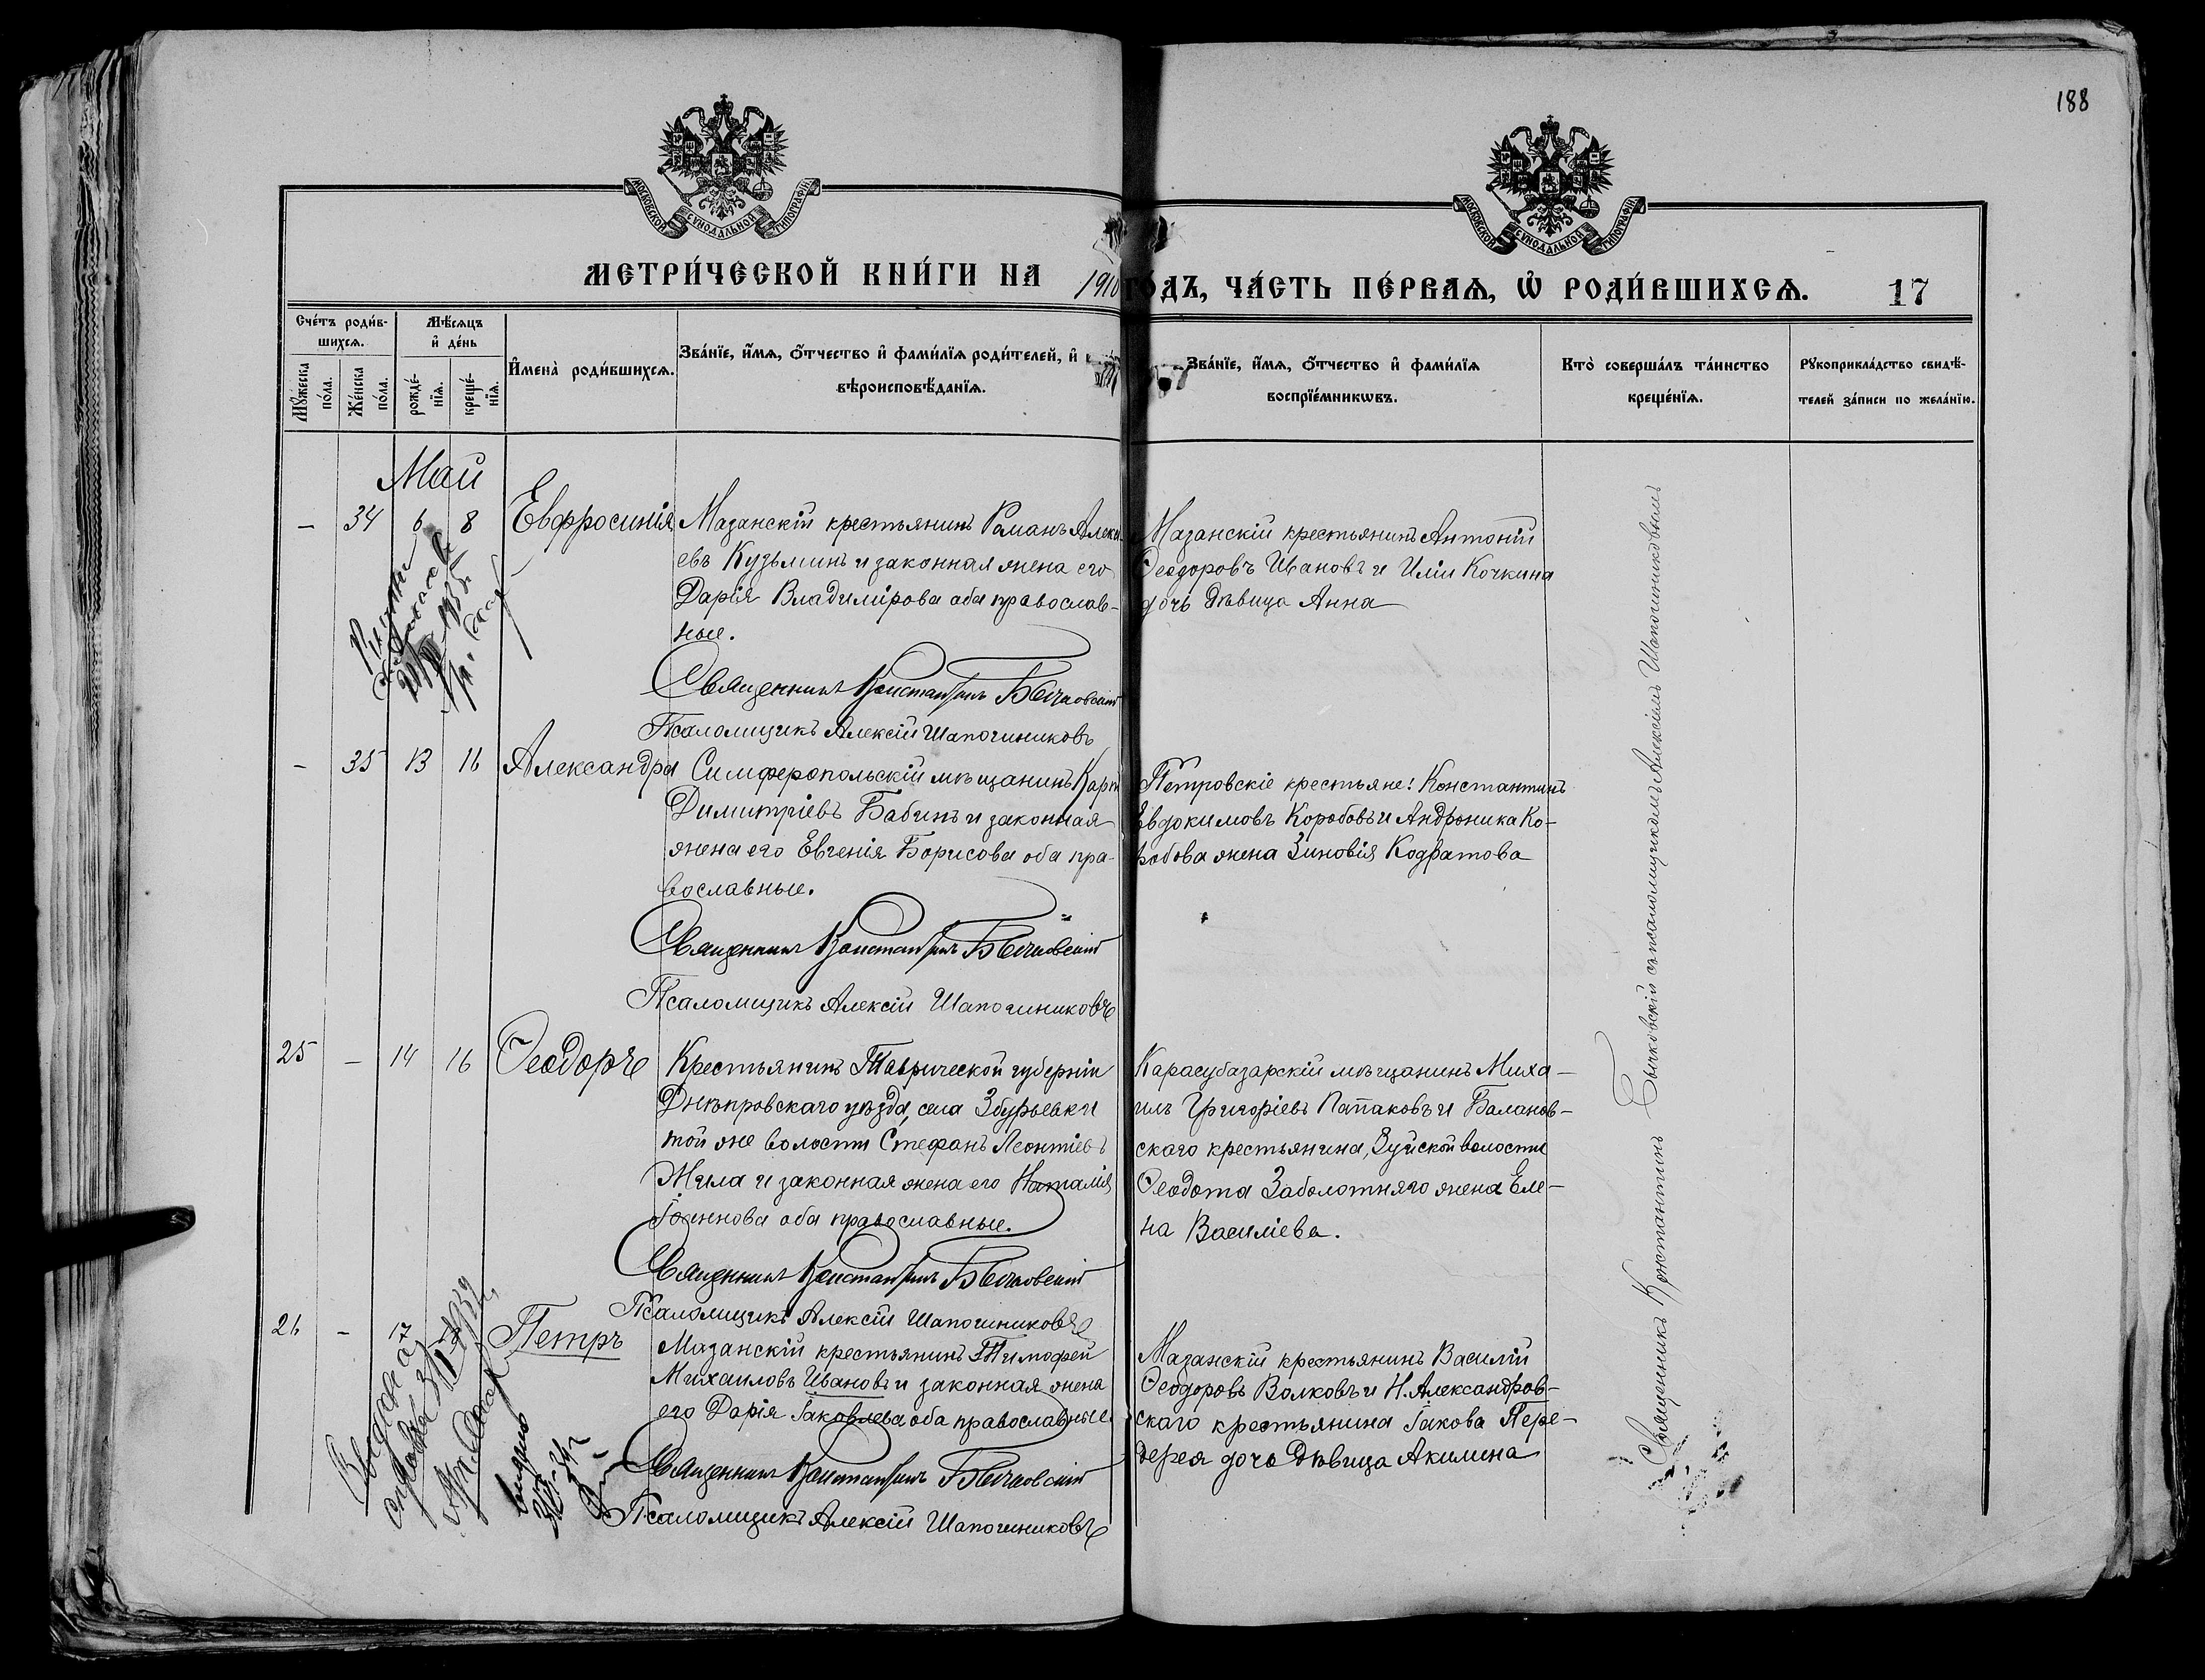 188
МОСКОВСКОЙ СУНОДАЛЬНОЙ ТИПОГРАФІИ.
МОСКОВСКОЙ СУНОДАЛЬНОЙ ТИПОГРАФІИ.
МЕТРИ́ЧЕСКОЙ КНИ́ГИ НА 1910 ГО́ДЪ, ЧА́СТЬ ПЕ́РВАѦ, Ѡ҆ РОДИ́ВШИХСѦ. 17
Сче́тъ роди́в-
шихсѧ.
Мꙋ́жеска
по́ла.
Же́нска
по́ла.
Мѣ́сѧцъ
и҆ де́нь
рожде́-
нїѧ.
креще́-
нїѧ.
И҆мена̀ роди́вшихсѧ.
Зва́нїе, и҆́мѧ, ѻ҆́тчество и҆ фами́лїѧ роди́телей, и҆
вѣроисповѣ́данїѧ.
Зва́нїе, и҆́мѧ, ѻ҆́тчество и҆ фами́лїѧ
воспрїе́мникѡвъ.
Кто̀ соверша́лъ та́инство
креще́нїѧ.
Рꙋкоприкла́дство свидѣ́-
телей за́писи по жела́нїю.
Май
— 34 6 8 Евфросинія
Мазанскій крестьянинъ Романъ Алекс
евъ Кузьминъ и законная жена его
Дарія Владимірова оба православ-
ные.
Священникъ Константинъ Бычковскій
Псаломщикъ Алексій Шапошниковъ
Мазанскій крестьянинъ Антоній
Ѳеодоровъ Ивановъ и Иліи Кочкина
дочь дѣвица Анна
— 35 13 16 Александра
Симферопольскій мѣщанинъ Карп
Димитріевъ Бабинъ и законная
жена его Евгенія Борисова оба пра-
вославные.
Священникъ Константинъ Бычковскій
Псаломщикъ Алексій Шапошниковъ
Петровскіе крестьяне: Константинъ
Евдокимовъ Коробовъ и Андроника Ко-
робова жена Зиновія Кодратова
25 — 14 16 Ѳеодоръ
Крестьянинъ Таврической губерніи
Днѣпровскаго уѣзда, села Збурьевки
той же волости Стефанъ Леонтіевъ
Жила и законная жена его Наталія
Іоаннова оба православные.
Священникъ Константинъ Бычковскій
Псаломщикъ Алексій Шапошниковъ
Карасубазарскій мѣщанинъ Миха-
илъ Григоріевъ Папаковъ и Баланов-
скаго крестьянина, Зуйской волости
Ѳеодота Заболотняго жена Еле-
на Василіева.
26 — 17 Петръ
Мазанскій крестьянинъ Тимофей
Михаиловъ Ивановъ и законная жена
его Дарія Іаковлева оба православные
Священникъ Константинъ Бычковскій
Псаломщикъ Алексій Шапошниковъ
Мазанскій крестьянинъ Василій
Ѳеодоровъ Волковъ и Н. Александров-
скаго крестьянина Іакова Пере-
дерея дочь дѣвица Акилина
Священникъ Константинъ Бычковскій съ псаломщикомъ Алексіемъ Шапошниковымъ